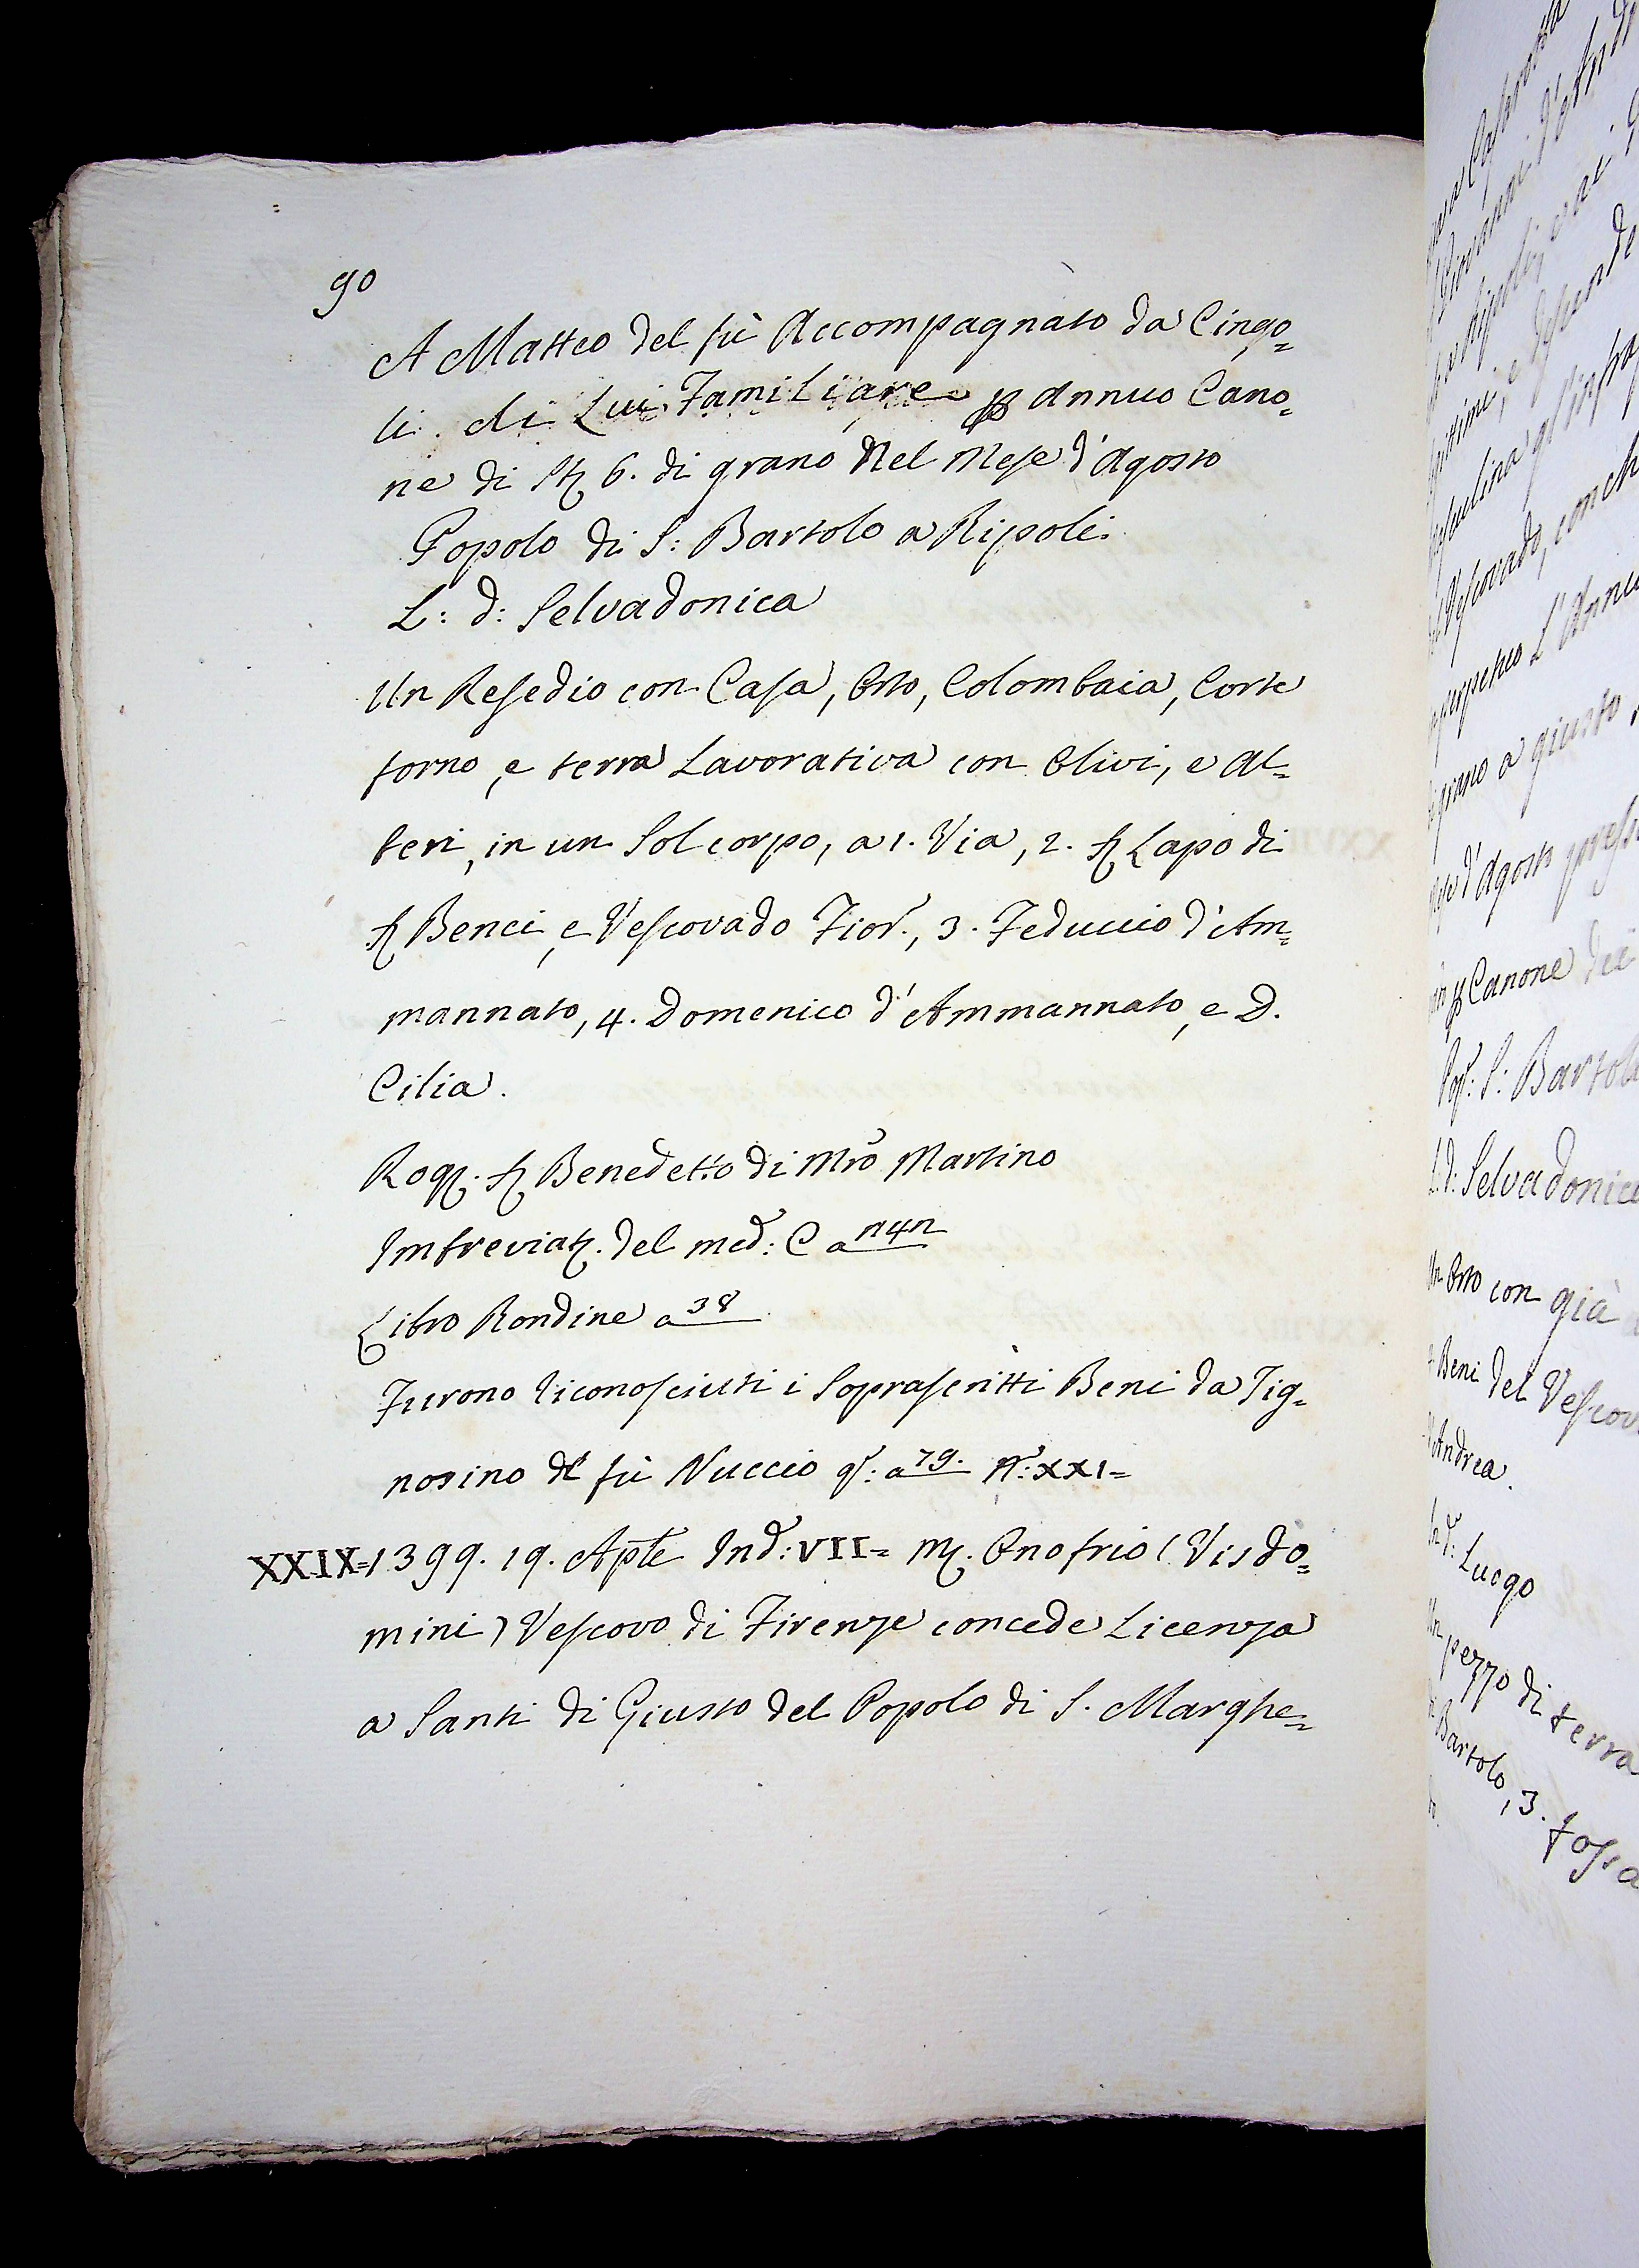 90
A Matteo del fù Accompagnato da Cingo=
li. di Lui Familiare p annuo Cano=
ne di St 6. di grano nel Mese d'Agosto
Popolo di S: Bartolo a Ripoli.
L: d: Selvadonica
Un Resedio con Casa, Orto, Colombaia, Corte
forno, e terra Lavorativa con Olivi, e Al=
beri, in un Sol corpo, a 1. Via, 2. S Lapo di
S Benci, e Vescovado Fior., 3. Feduccio d'Am=
mannato, 4. Domenico d'Ammannato, e D.
Cilia.
Rog. S Benedetto di Mro Martino
Imbreviat. del med: C a 141
Libro Rondine a 38
Furono riconosciuti i Soprascritti Beni da Tig=
nosino del fù Nuccio q: a 79. N: XXI=
XXIX=1399. 19. Aple Ind: VII= M. Onofrio (Visdo=
mini) Vescovo di Firenze concede Licenza
a Santi di Giusto del Popolo di S. Marghe=
Vescovado, con ch
perpetuo L'Annu
grano a giusto
d'Agosto presso
p Canone dei
Pop: S: Bartolo
L: d: Selvadonica
Un Orto con già
Beni del Vescov
Andrea.
Ind: Luogo
Un pezzo di terra
Bartolo, 3. fossa